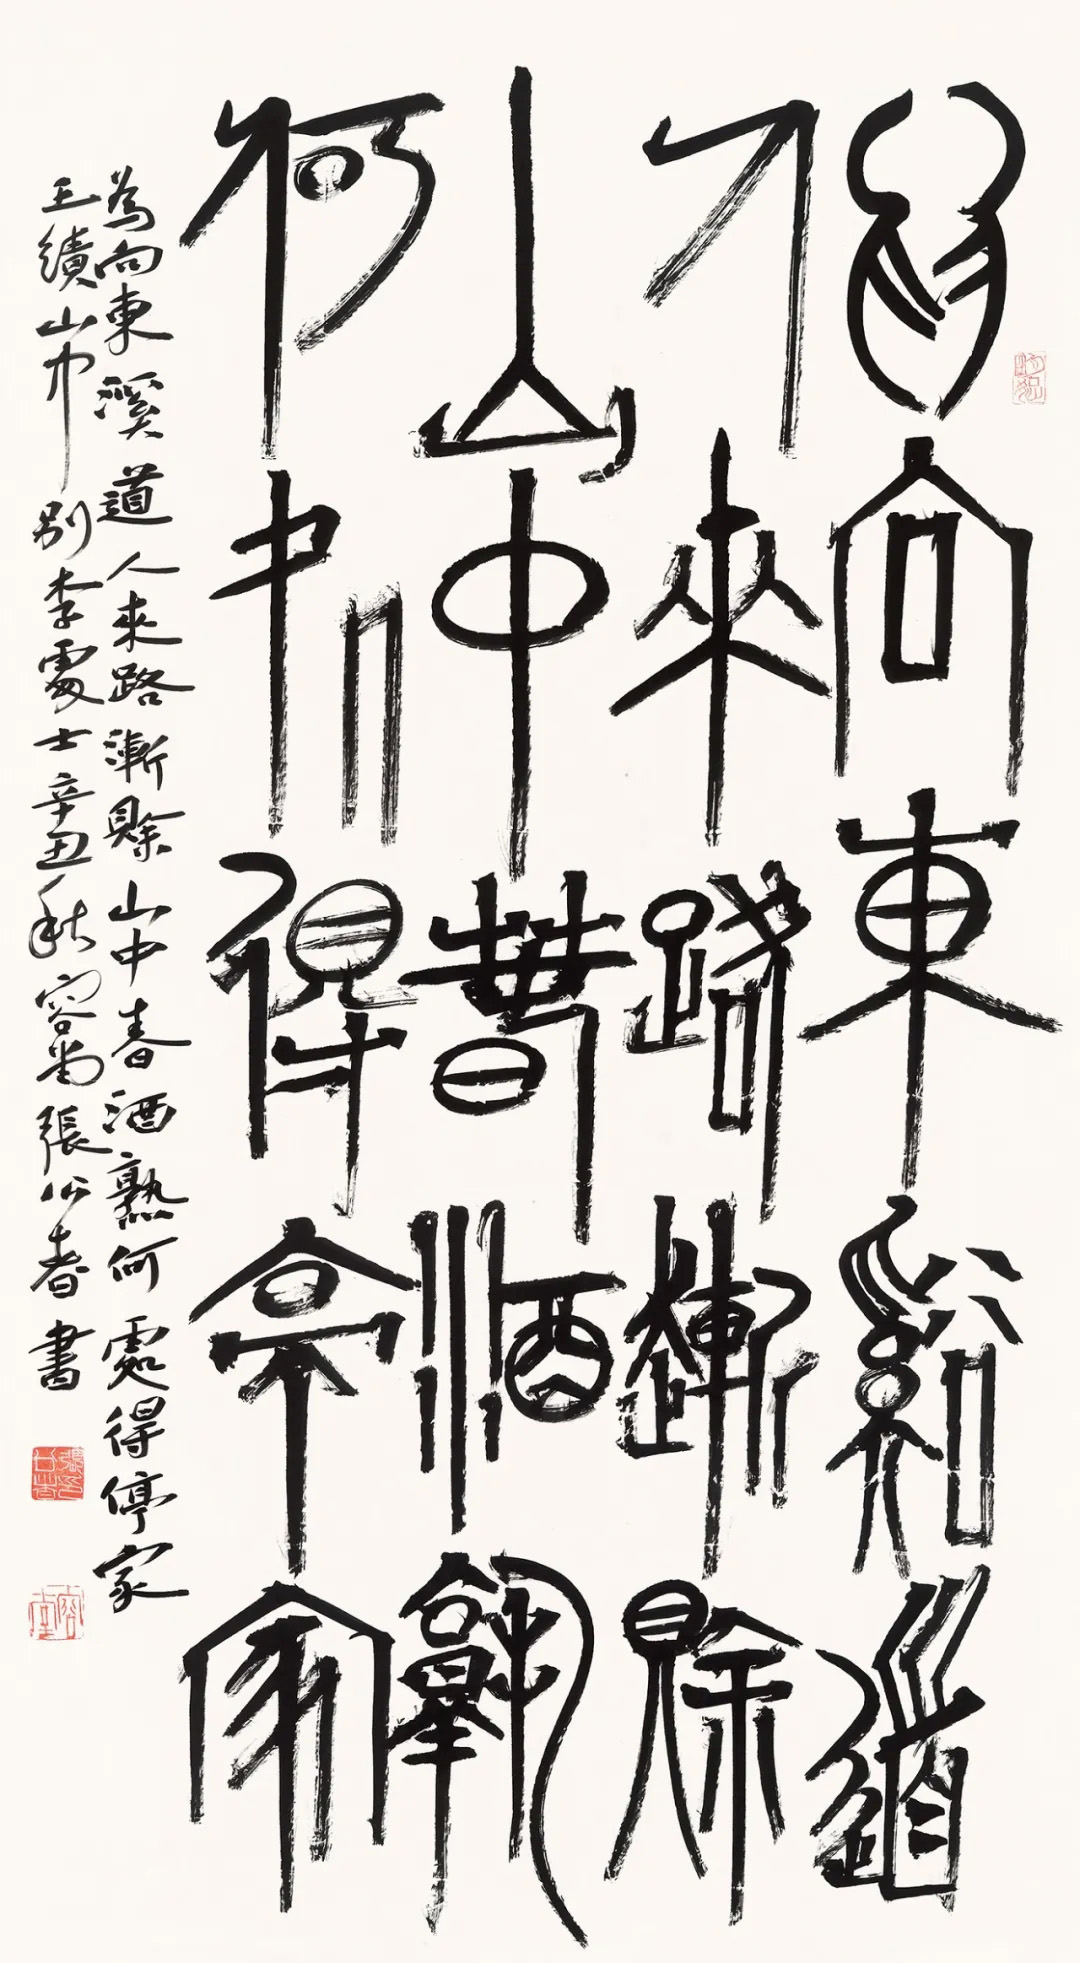 為向東谿道
人來路漸賖
山中春酒孰
何処得亭家
為向東溪道人來路漸賖山中春酒熟何處得停家
王績山中別李處士辛丑秋容堂張公者書